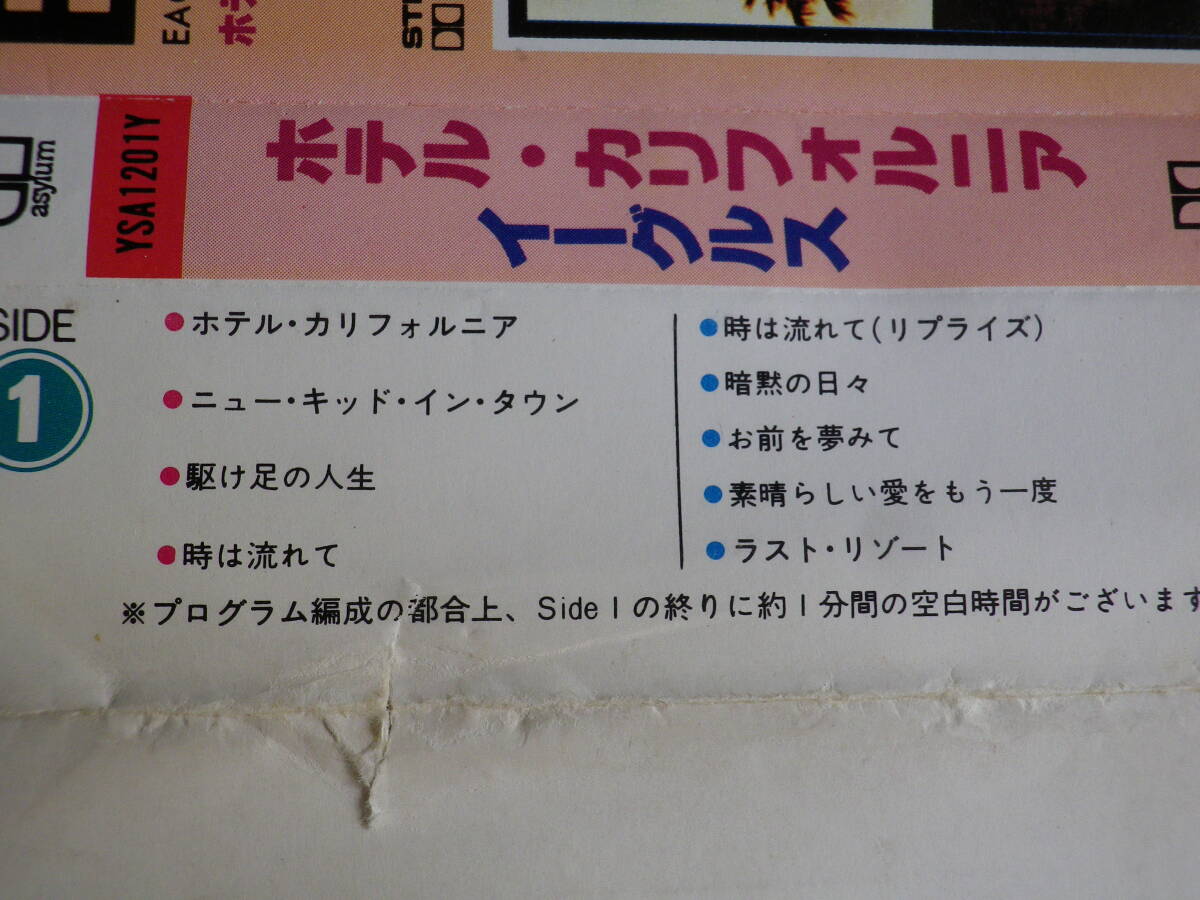 asylum
YSA1201Y
ホテル・カリフォルニア
イーグルス
SIDE
1
●ホテル・カリフォルニア
●ニュー・キッド・イン・タウン
●駆け足の人生
●時は流れて
●時は流れて(リプライズ)
●暗黙の日々
●お前を夢みて
●素晴らしい愛をもう一度
●ラスト・リゾート
※プログラム編成の都合上、Side 1の終りに約1分間の空白時間がございます